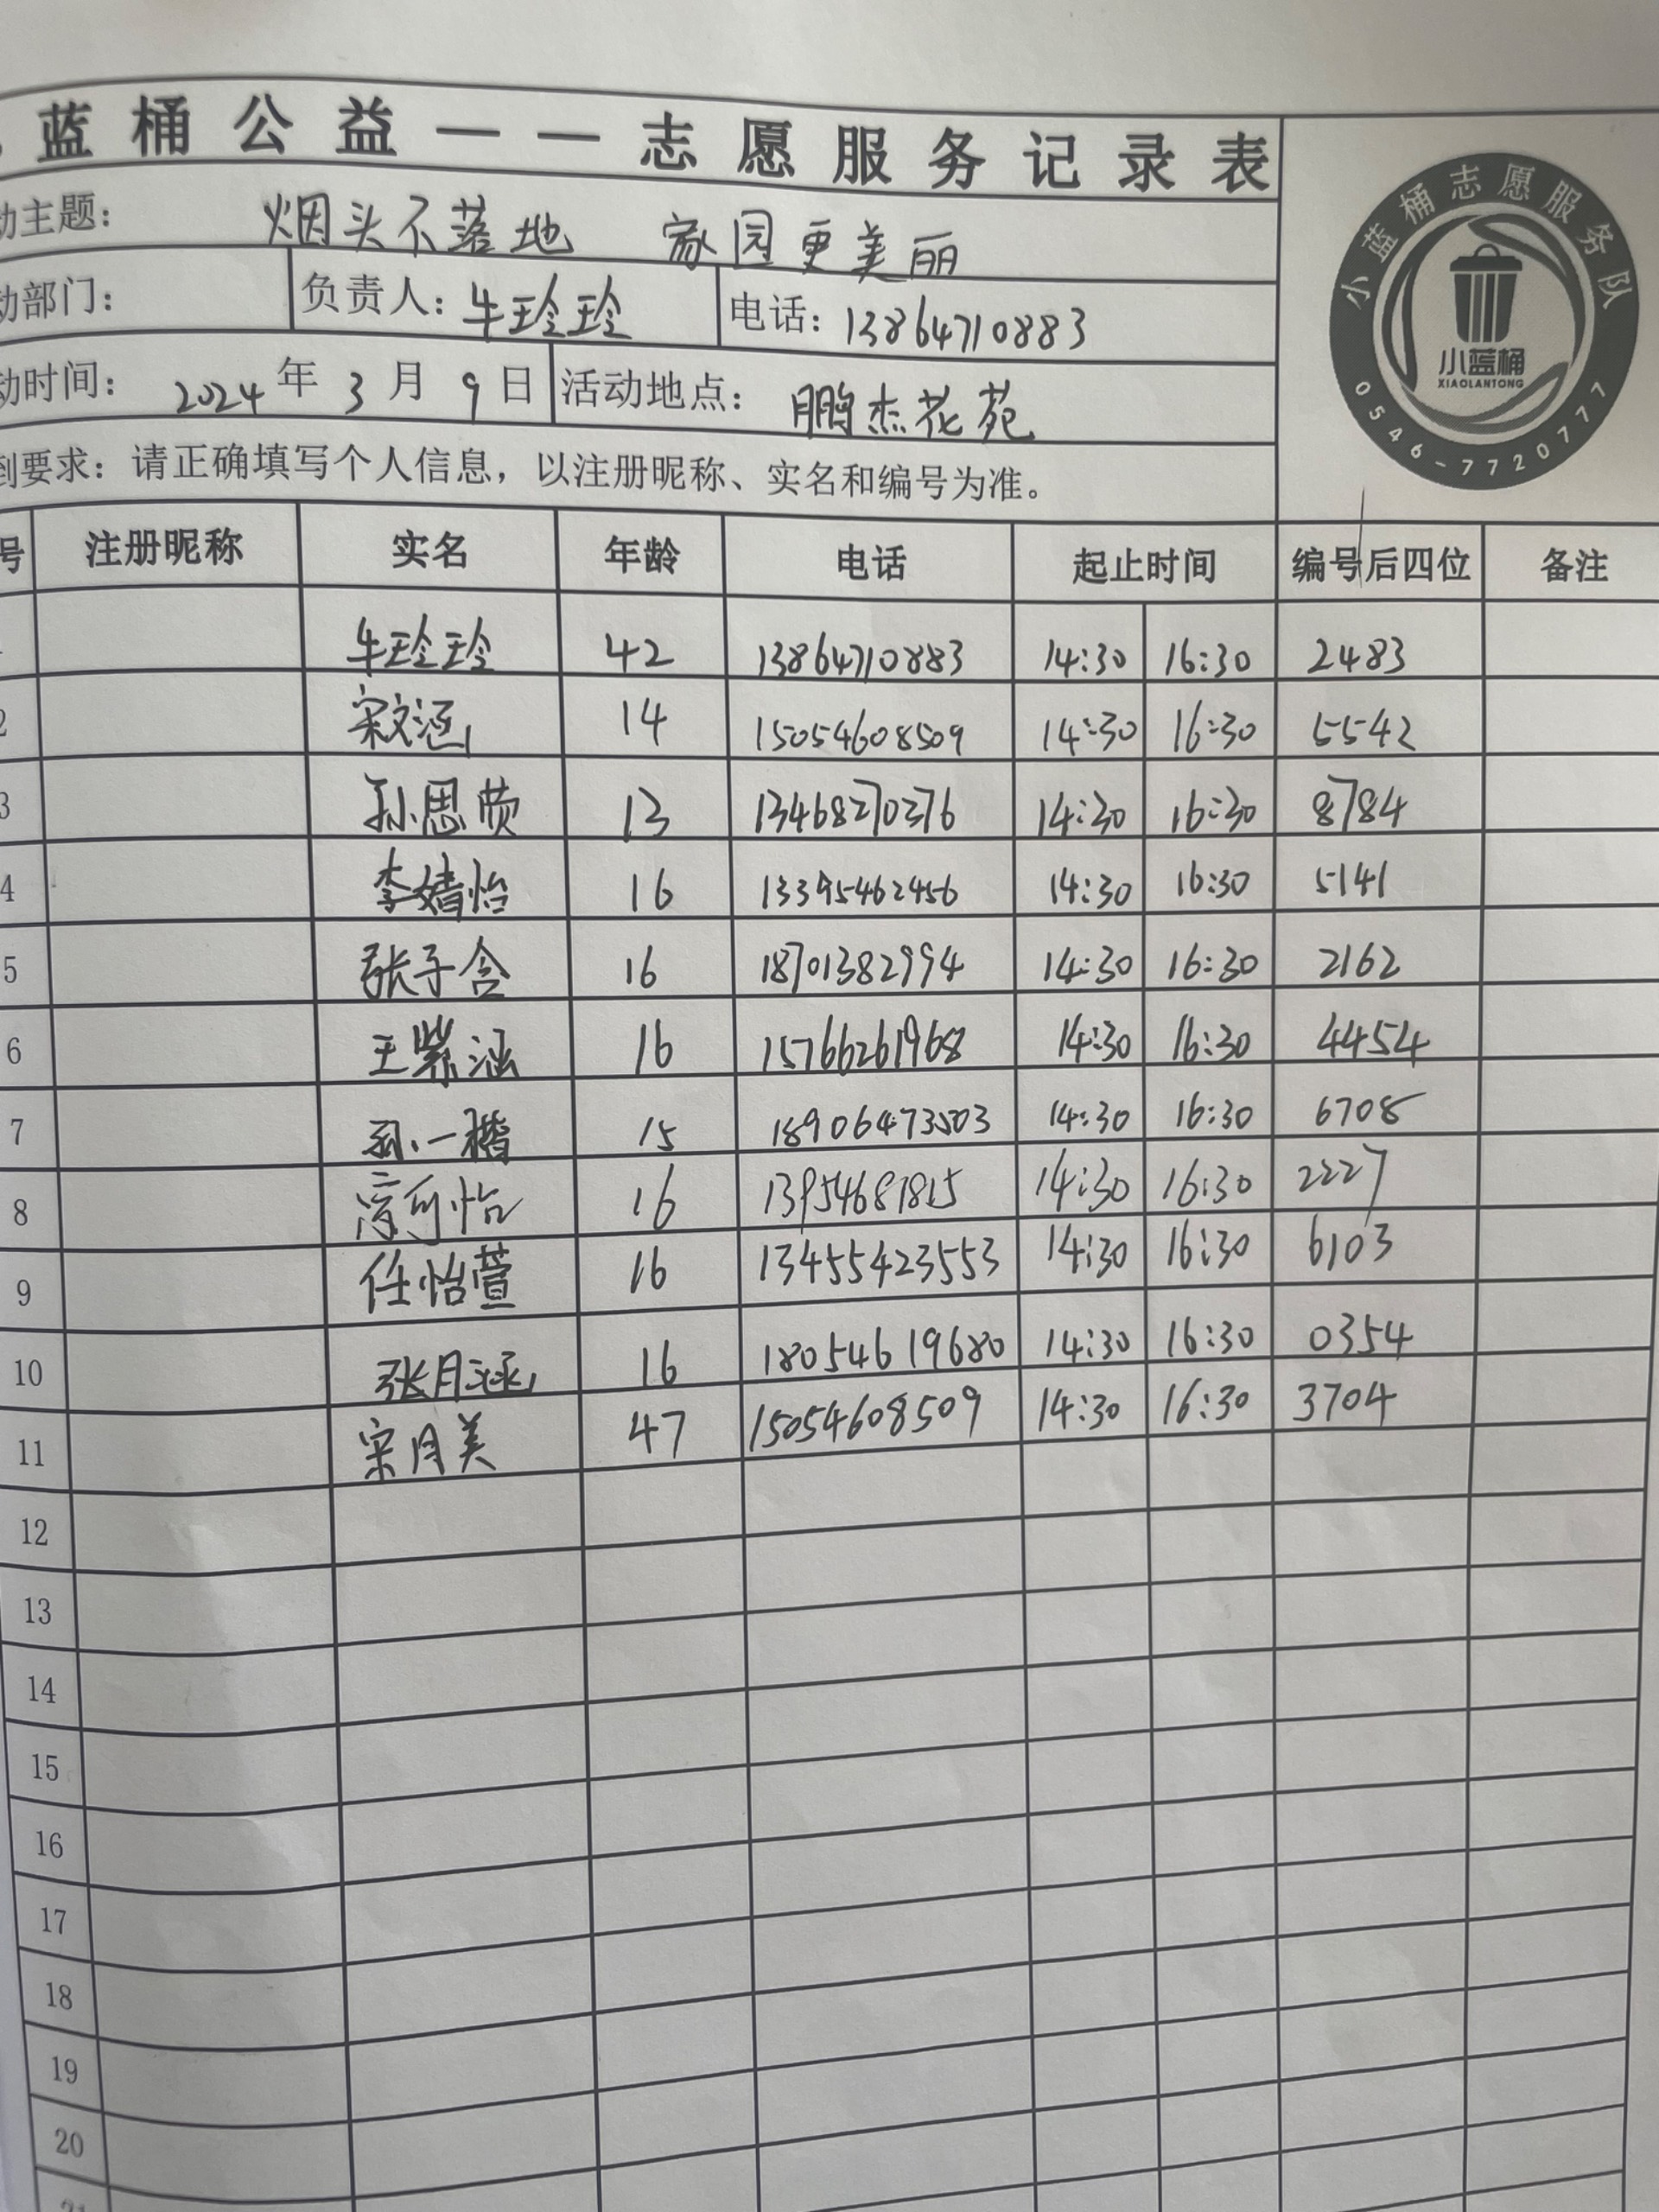 蓝桶公益——志愿服务记录表
动主题： 烟头不落地 家园更美丽
动部门： 负责人：牛玲玲 电话：13864710883
动时间： 2024年3月9日 活动地点： 鹏杰花苑
到要求：请正确填写个人信息，以注册昵称、实名和编号为准。
小蓝桶志愿服务队
小蓝桶
XIAOLANTONG
0546-7720777
号 注册昵称 实名 年龄 电话 起止时间 编号后四位 备注
牛玲玲 42 13864710883 14:30 16:30 2483
2 宋文涵 14 15054608509 14:30 16:30 5542
3 孙思荧 13 13468270376 14:30 16:30 8784
4 李婧怡 16 13395462456 14:30 16:30 5141
5 张子含 16 18701382994 14:30 16:30 2162
6 王紫涵 16 15766261968 14:30 16:30 4454
7 孙一楷 15 18906473503 14:30 16:30 6708
8 可怡 16 13954681815 14:30 16:30 2227
9 任怡萱 16 13455423553 14:30 16:30 6103
10 张月涵 16 18054619680 14:30 16:30 0354
11 宋月美 47 15054608509 14:30 16:30 3704
12
13
14
15
16
17
18
19
20